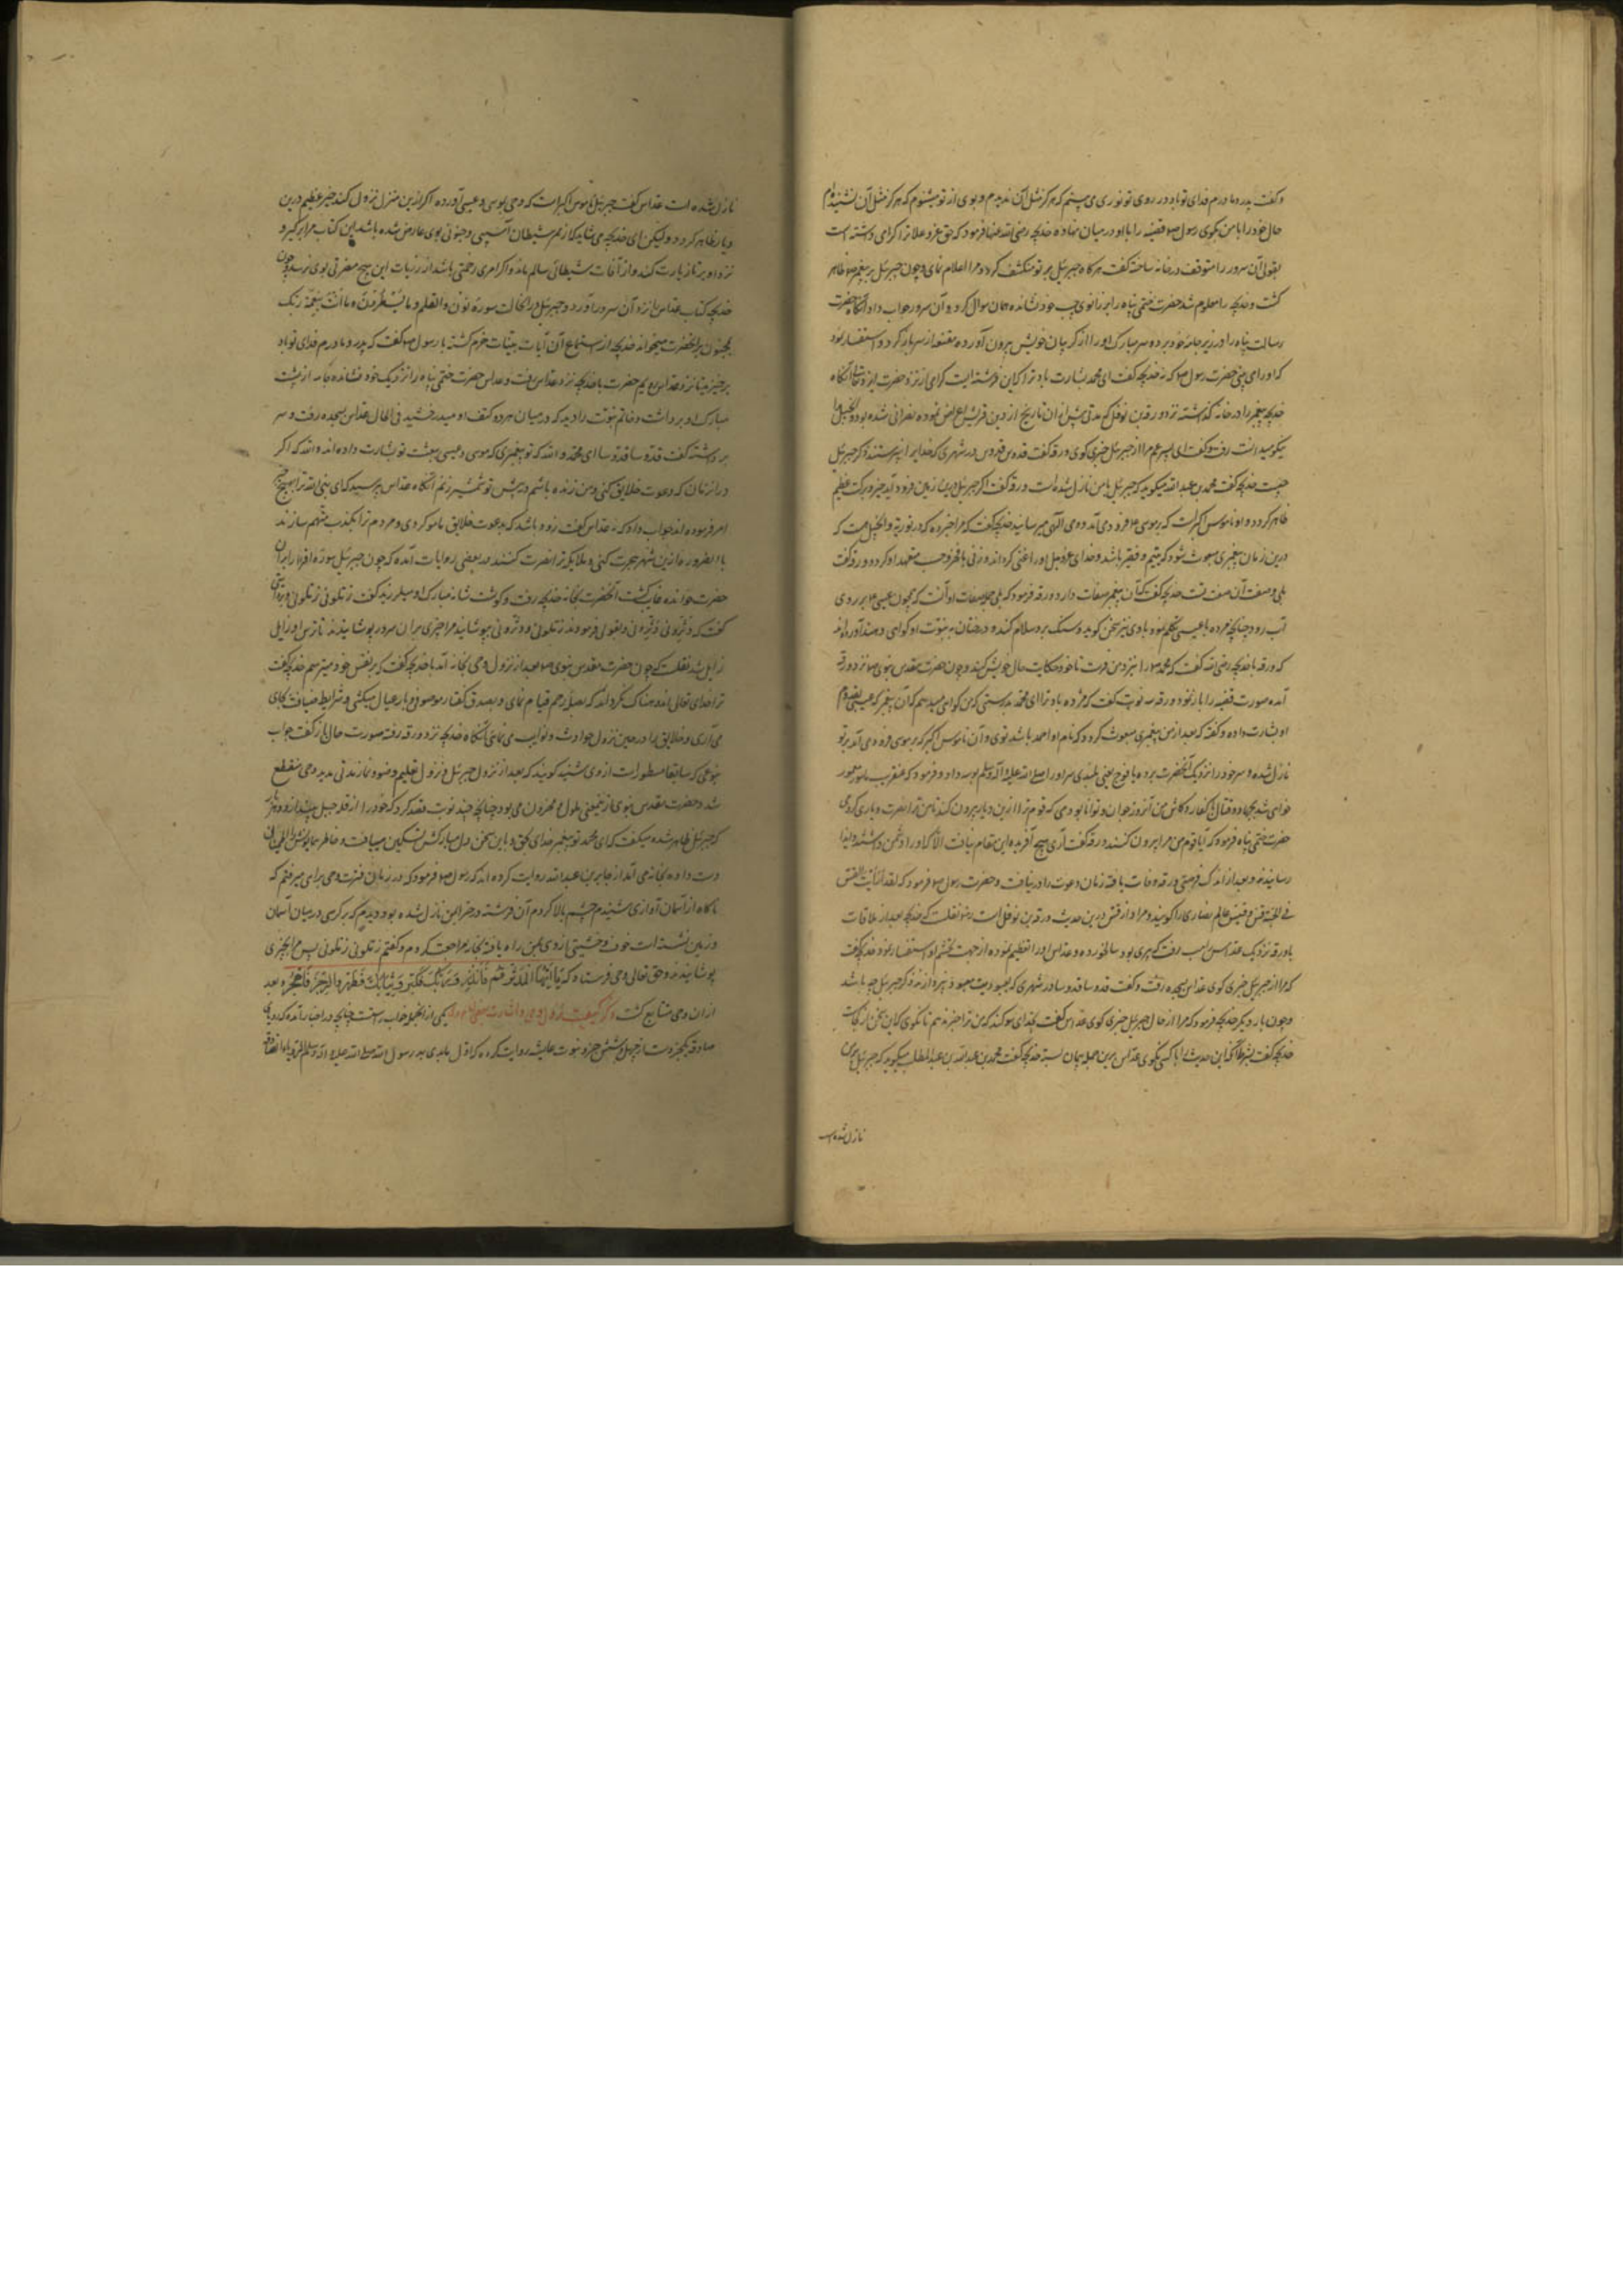 وکفت پدر و مادرم فدای تو باد در روی تو نوری می بینم که هرکز مثل آن ندیدم و بوی از تو میشنوم که هرکز مثل آن نشنیدم
حال خود را با من بکوی رسول صم قضیه را با او در میان نهاده خدیجه رضی الله عنها فرمود که حق عز و علا ترا کرامی داشته است
بقولی آن سرور را متوقف در خانه ساخته کفت هر کاه جبرئیل بر تو منکشف کردد مرا اعلام نمای و چون جبرئیل بر پیغمبر صم ظاهر
کشت و خدیجه را معلوم شد حضرت ختمی پناه را بر زانوی چپ خود نشانده همان سوال کرد و آن سرور جواب داد آنکاه حضرت
رسالت پناه را در زیر جامه خود برده سر مبارک او را از کریبان خویش بیرون آورده مقنعه از سر باز کرد و استفسار نمود
که او را می بینی حضرت رسول صم که نه خدیجه کفت ای محمد بشارت باد ترا که این فرشته ایست کرامی از نزد حضرت ایزد تعالی آنکاه
خدیجه پیغمبر را در خانه کذاشته نزد ورقة بن نوفل که مدتی پیش از آن تاریخ از دین قریش اعراض نموده نصرانی شده بود و انجیل را
نیکو میدانست رفت و کفت ای پسر عم مرا از جبرئیل خبری کوی ورقه کفت قدوس قدوس در شهری که خدایرا نپرستند ذکر جبرئیل
چیست خدیجه کفت محمد بن عبد الله میکوید که جبرئیل بامن نازل شده است ورقه کفت اکر جبرئیل درین زمین فرود آید خیر و برکت عظیم
ظاهر کردد و او ناموس اکبر است که بر موسی ۴م فرود می آمد و وحی الهی میرسانید خدیجه کفت که مرا خبر ده که در توریة و انجیل هست که
درین زمان پیغمبری مبعوث شود که یتیم و فقیر باشد و خدای عز و جل او را غنی کرداند و زنی با فر و حسب متعهد او کردد ورقه کفت
بلی وصفت آن صفت تست خدیجه کفت که آن پیغمبر صفات دارد ورقه فرمود که بلی جمله صفات او آنست که همچون عیسی ۴م بر روی
آب رود چنانچه مرده با عیسی تکلم نمود با وی نیز سخن کوید و سنک برو سلام کند و درختان به نبوت او کواهی دهند آورده اند
که ورقه با خدیجه رضی الله کفت که محمد صم را بنزد من فرست تا خود حکایت حال خویش کند و چون حضرت مقدس نبوی صم نزد ورقه
آمده صورت قضیه را باز نمود ورقه سه نوبت کفت که مژده باد ترا ای محمد بدرستی که من کواهی میدهم که آن پیغمبر که عیسی بقدوم
او بشارت داده و کفته که بعد از من پیغمبری مبعوث کردد که نام او احمد باشد توی و آن ناموس اکبر که بر موسی فرود می آمد بر تو
نازل شده و سر خود را نزدیک آنحضرت برده یا فوخ یعنی بلندی سر او را صلی الله علیه و آله وسلم بوسه داد و فرمود که عنقریب مامور
خواهی شد بجهاد و قتال کفار و کاش من آنروز جوان و توانا بودمی که قوم ترا ازین دیار بیرون کنند تا من ترا نصرت و یاری کردمی
حضرت ختمی پناه فرمود که آیا قوم من مرا بیرون کنند ورقه کفت آری هیچ آفریده این مقام نیافت الا که او را دشمن داشتند و ایذا
رسانیدند و بعد از اندک فرصتی ورقه وفات یافته زمان دعوت را در نیافت و حضرت رسول صم فرمود که لقد رأیت القس
فی الجنة قس و قسیس عالم نصاری را کویند و مراد از قس درین حدیث ورقة بن نوفل است نقلست که خدیجه بعد از ملاقات
با ورقه نزدیک عداس راهب رفت که پیری بود سالخورده و عداس او را تعظیم نموده از جهت تجشم او استفسار نمود خدیجه کفت
که مرا از جبرئیل خبری کوی عداس بسجده رفت و کفت قدوسا قدوسا در شهری که بعبودیت معبود نپردازند ذکر جبرئیل چه باشد
و چون بار دیکر خدیجه فرمود که مرا از حال جبرئیل خبری کوی عداس کفت بخدای سوکند که من ترا خبر ندهم تا نکوی که این سخن از کجاست
خدیجه کفت بشرط آنکه این حدیث را با کسی نکوی عداس برین جمله پیمان بسته خدیجه کفت محمد بن عبد الله بن عبد المطلب میکوید که جبرئیل بر من
نازل شده است
نازل شده است عداس کفت جبرئیل ناموس اکبر است که وحی بموسی و عیسی آورده اکر ازین منزل نزول کند خیر عظیم درین
دیار ظاهر کردد و لیکن ای خدیجه می شاید که از ممر شیطان آسیبی و جنونی بوی عارض شده باشد این کتاب مرا برکیر و
نزد او بر تا زیارت کند و از آفات شیطانی سالم ماند و اکر امری رحمتی باشد از زیارت این هیچ مضرتی بوی نرسد و چون
خدیجه کتاب عداس را نزد آن سرور آورد و جبرئیل در آنحالت سوره نون والقلم وما یسطرون ما انت بنعمة ربک
بمجنون بر آنحضرت میخواند خدیجه از استماع آن آیات بینات خرم کشته با رسول صم کفت که پدر و مادرم فدای تو باد
برخیز تا نزد عداس رویم حضرت با خدیجه نزد عداس رفت و عداس حضرت ختمی پناه را نزدیک خود نشانده جامه از پشت
مبارک او برداشت و خاتم نبوت را دید که در میان هر دو کتف او میدرخشید فی الحال عداس بسجده رفت و سر
برداشته کفت قدوسا قدوسا ای محمد والله که تو پیغمبری که موسی و عیسی ببعثت تو بشارت داده اند والله که اکر
در آن زمان که دعوت خلایق کنی و من زنده باشم در پیش تو شمشیر زنم آنکاه عداس پرسید که ای نبی الله ترا بهیچ چیز
امر فرموده اند جواب داد که نه عداس کفت زود باشد که بدعوت خلایق مامور کردی و مردم ترا بکذب متهم سازند
با الضروره ازین شهر هجرت کنی و ملایکه ترا نصرت کنند در بعضی روایات آمده که چون جبرئیل سوره اقرا را بر آن
حضرت خوانده غایب کشت آنحضرت بخانه خدیجه رفت و کوشت شانه مبارک او میلرزید کفت زملونی زملونی و بروایتی
کفت که دثرونی دثرونی و بقولی فرمودند زملونی و دثرونی بپوشانید مرا چیزی بر آن سرور پوشانیدند تا ترس او زایل
زایل شد نقلست که چون حضرت مقدس نبوی صم بعد از نزول وحی بخانه آمد با خدیجه کفت که بر نفس خود میترسم خدیجه کفت
ترا خدای تعالی اندوهناک نکرداند که بصله رحم قیام نمای و بصدق کفتار موصوفی و بار عیال میکشی و شرایط ضیافت بجای
می آری و خلایق را در حین نزول حوادث و نوایب می نمای آنکاه خدیجه نزد ورقه رفته صورت حال باز کفت جواب
بنوعی که سابقا مسطور است از وی شنید کویند که بعد از نزول جبرئیل و نزول تعلیم وضو و نماز مدتی مدید وحی منقطع
شد و حضرت مقدس نبوی ازین معنی ملول و محزون می بود چنانچه چند نوبت قصد کرد که خود را از قله جبل بیندازد و هر بار
که جبرئیل ظاهر شده میکفت که ای محمد تو پیغمبر خدای بحق و باین سخن دل مبارکش تسکین مییافت و خاطر همایونش را اطمینان
دست داده بخانه می آمد از جابر بن عبد الله روایت کرده اند که رسول صم فرمود که در زمان فترت وحی براهی میرفتم که
ناکاه از آسمان آوازی شنیدم چشم بالا کردم آن فرشته در حرا بمن نازل شده بود دیدم که بر کرسی در میان آسمان
و زمین نشسته است خوف و خشیتی از وی بمن راه یافته بخانه مراجعت کردم و کفتم زملونی زملونی پس مرا بچیزی
پوشانیدند و حق تعالی وحی فرستاد که یا ایها المدثر قم فانذر و ربک فکبر و ثیابک فطهر والرجز فاهجر و بعد
از ان وحی متتابع کشت ذکر کیفیت نزول وحی یکی از آنجمله خواب راست چنانچه در اخبار آمده که رویای
صادقه یکجزوست از چهل و شش جزو نبوت عایشه روایت کرده که اول ما بدی به رسول الله صلی الله علیه و آله وسلم الرؤیا